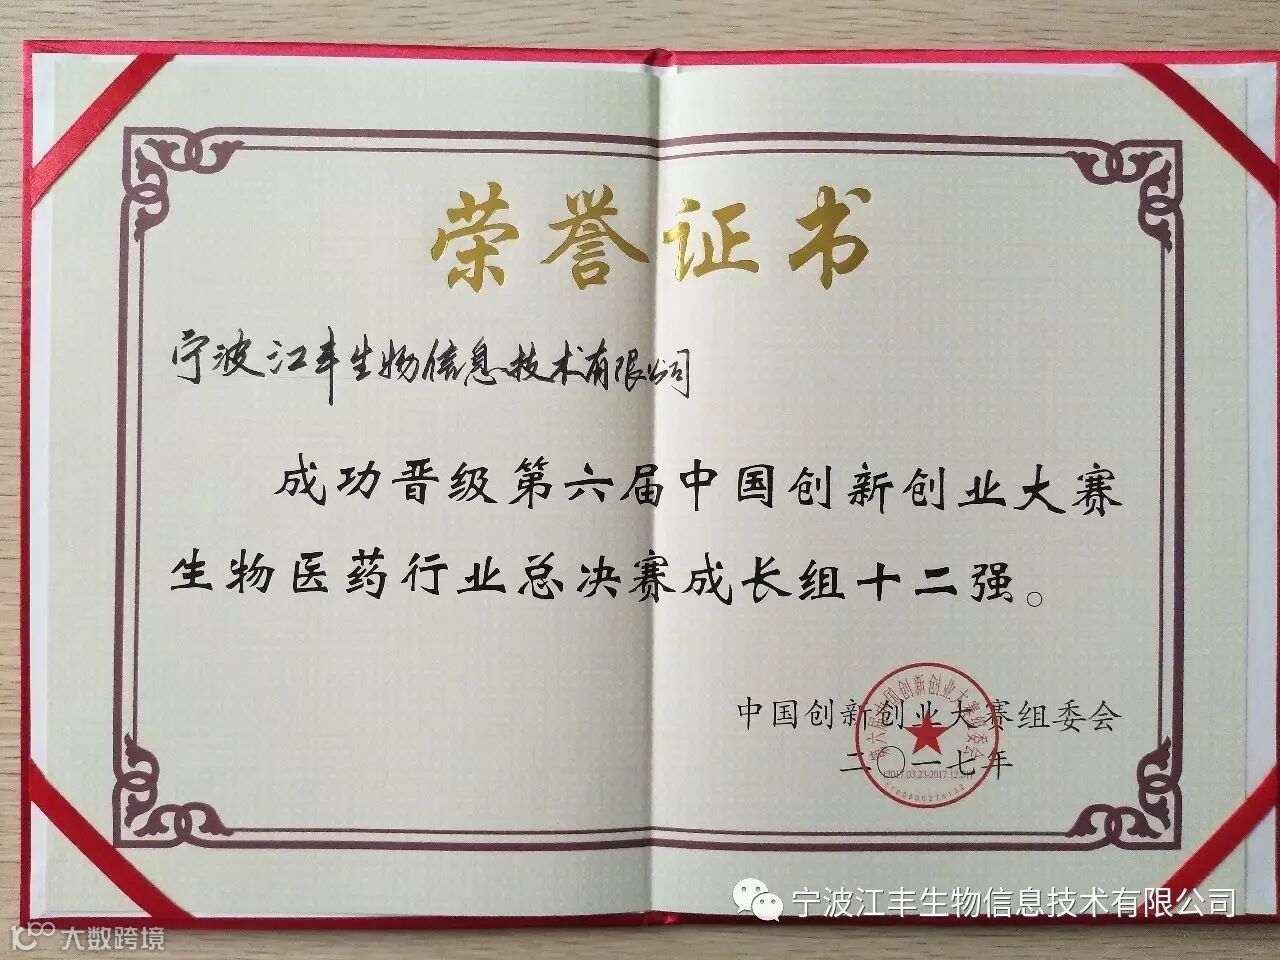 荣誉证书
宁波江丰生物信息技术有限公司
成功晋级第六届中国创新创业大赛
生物医药行业总决赛成长组十二强。
中国创新创业大赛组委会
二〇一七年
第六届中国创新创业大赛组委会
(2017.03.23-2017.12.31)
宁波江丰生物信息技术有限公司
大数跨境